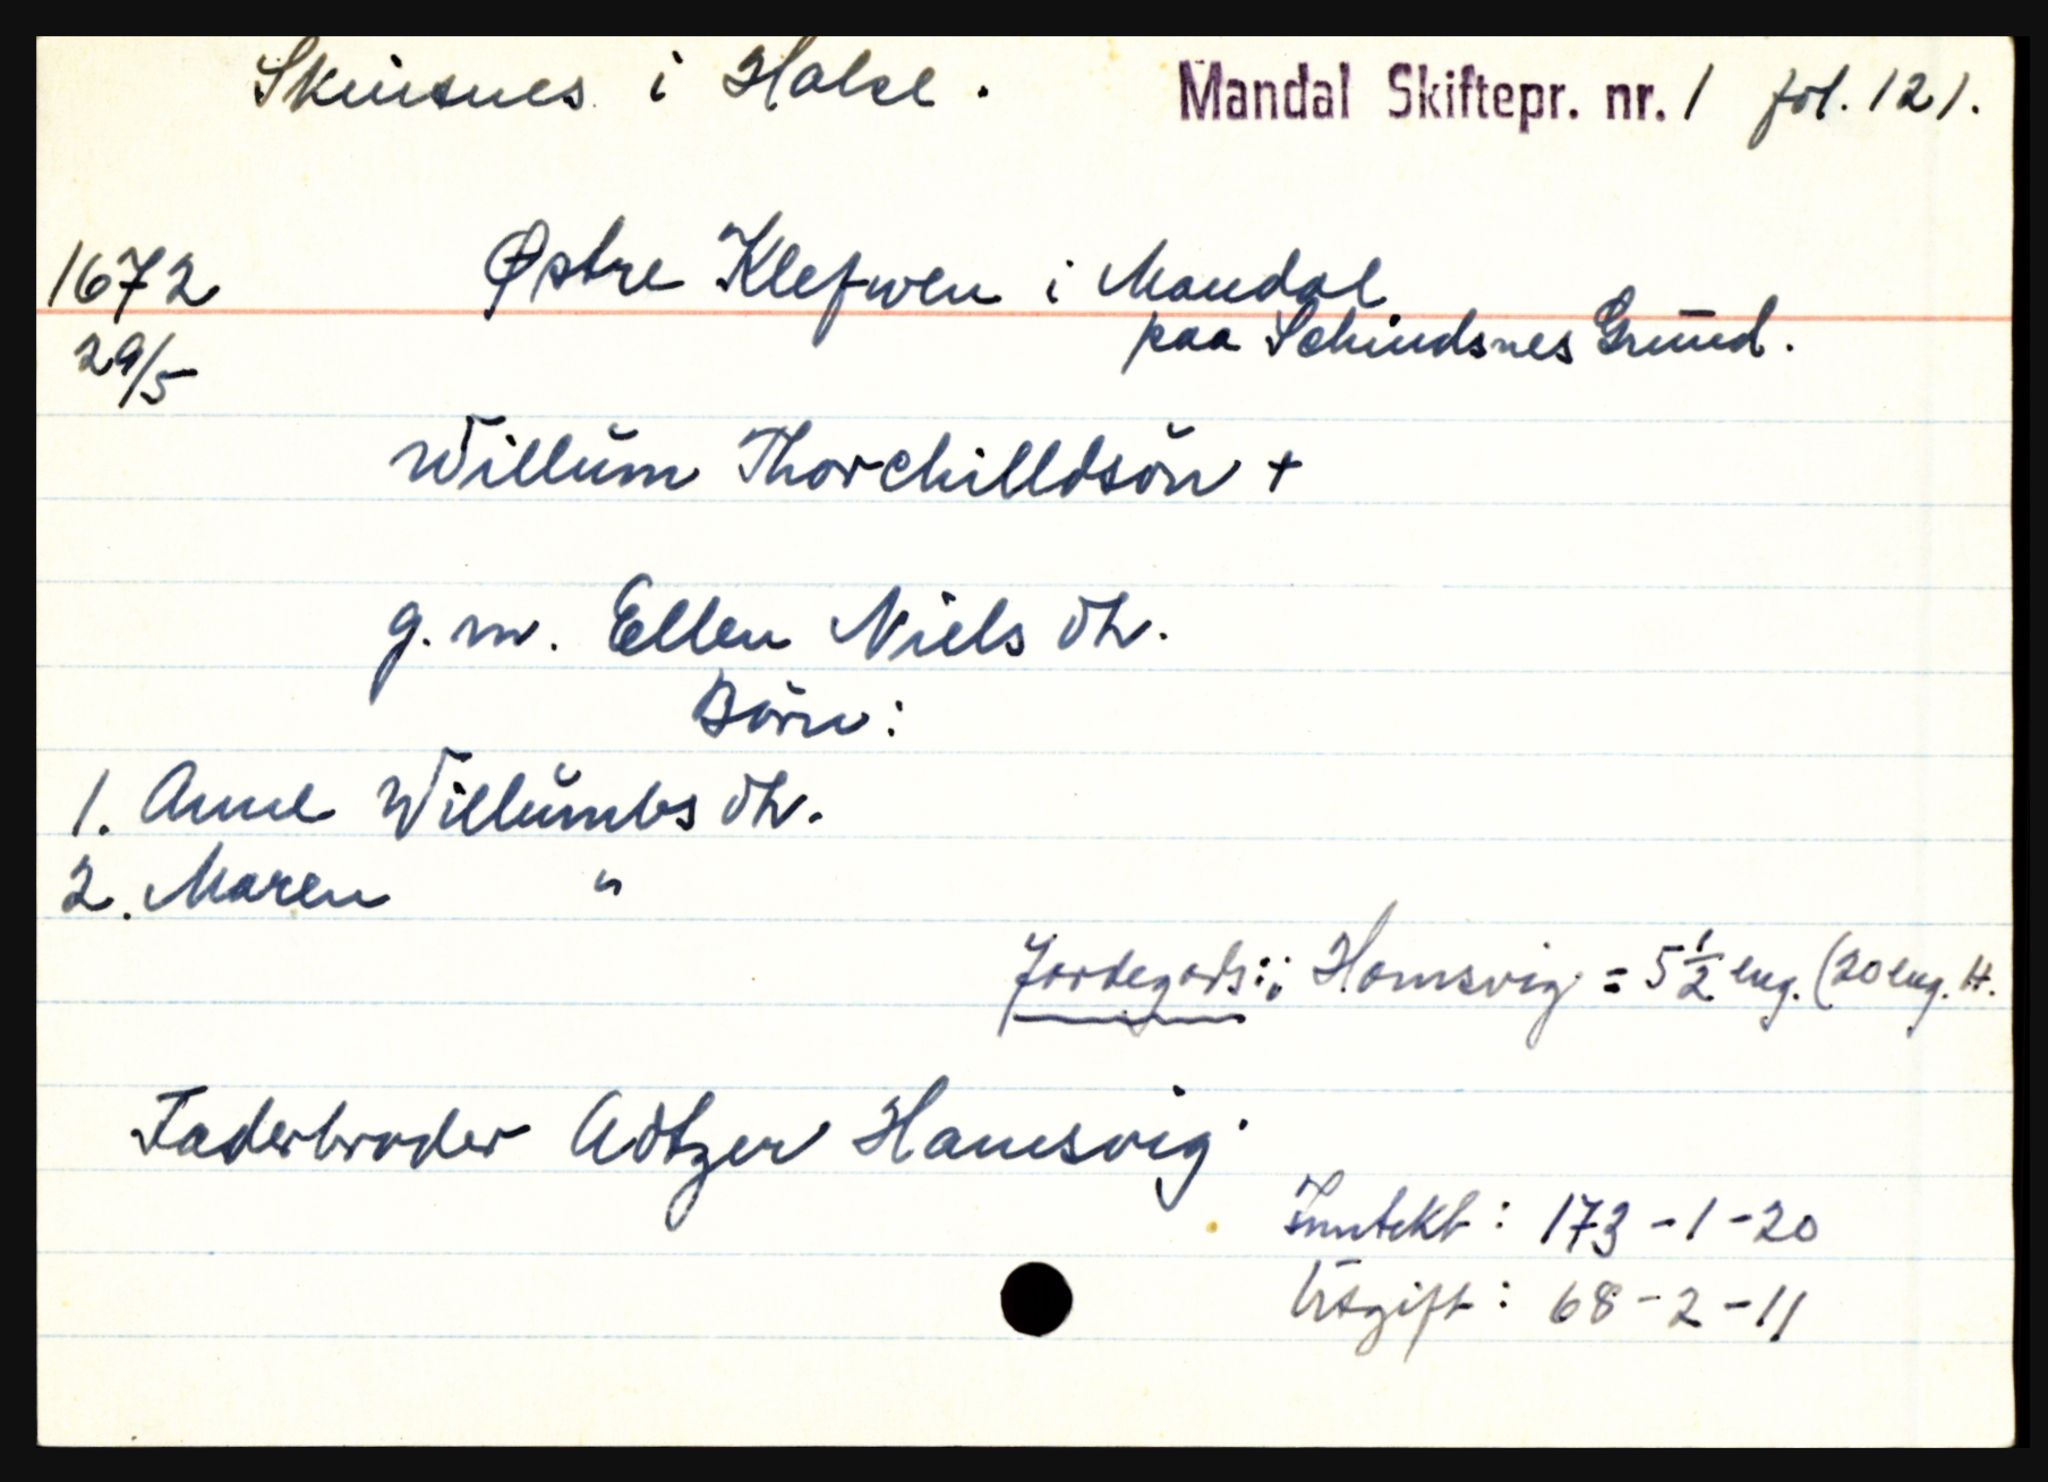 Skinsnes i Halse. Mandal Skiftepr. nr. 1 fol. 121.
1672 Østre Klefwen i Mandal
29/5 paa Schindsnes Grund.
Willum Thorchilldsön +
g. m. Ellen Niels dh.
Börn:
1. Anne Willumbs dh.
2. Maren "
Jordegods: Homsvig = 5 1/2 eng. (20 eng. H.
Faderbroder Adtzer Hamsvig
Inntekt: 173-1-20
Utgift: 68-2-11